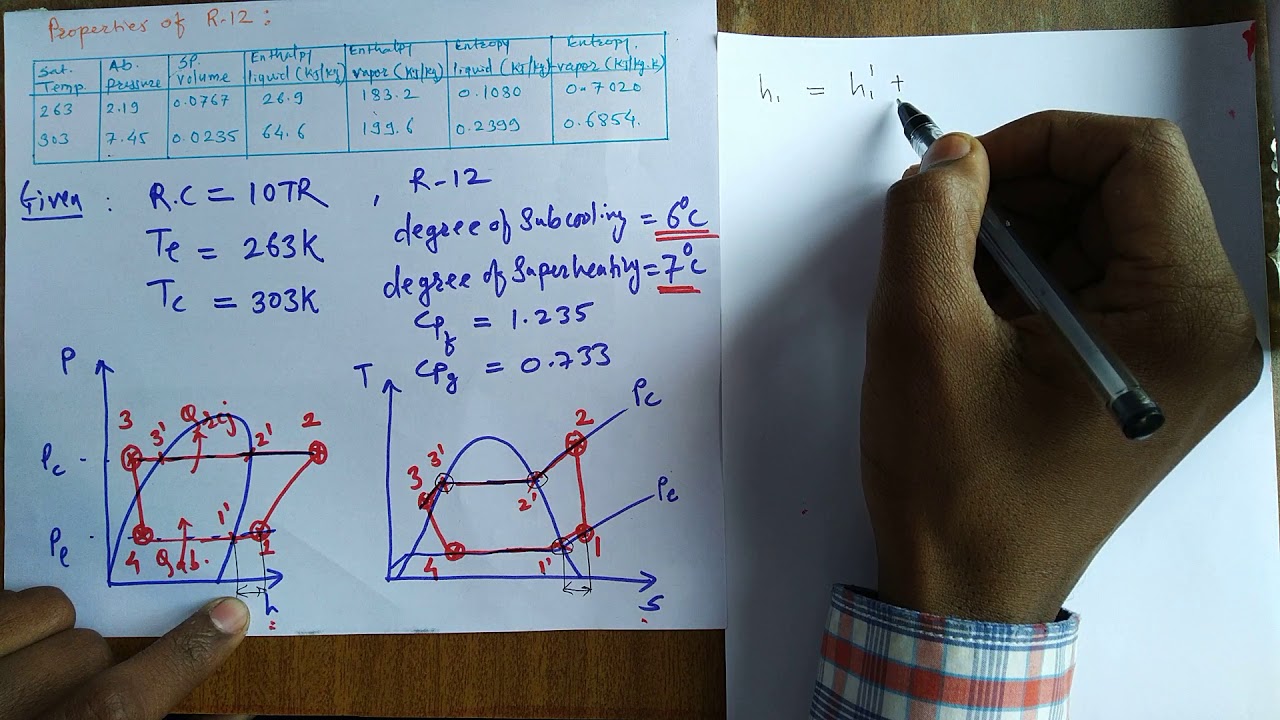 Properties of R-12 :
Sat. Temp. Ab. Pressure SP. Volume Enthalpy liquid (KJ/kg) Enthalpy vapor (KJ/kg) Entropy liquid (KJ/kg) Entropy. vapor (KJ/kg.K)
263 2.19 0.0767 26.9 183.2 0.1080 0.7020
303 7.45 0.0235 64.6 199.6 0.2399 0.6854.
Given : R.C = 10TR , R-12
Te = 263K degree of Subcooling = 6°C
Tc = 303K degree of Superheating = 7°C
Cpf = 1.235
Cpg = 0.733
P
3 3' Qrej 2' 2
Pc
Pe
4 Qab. 1' 1
h
T
Pc
2
3 3' 2'
Pe
4 1' 1
s
h1 = h1' +